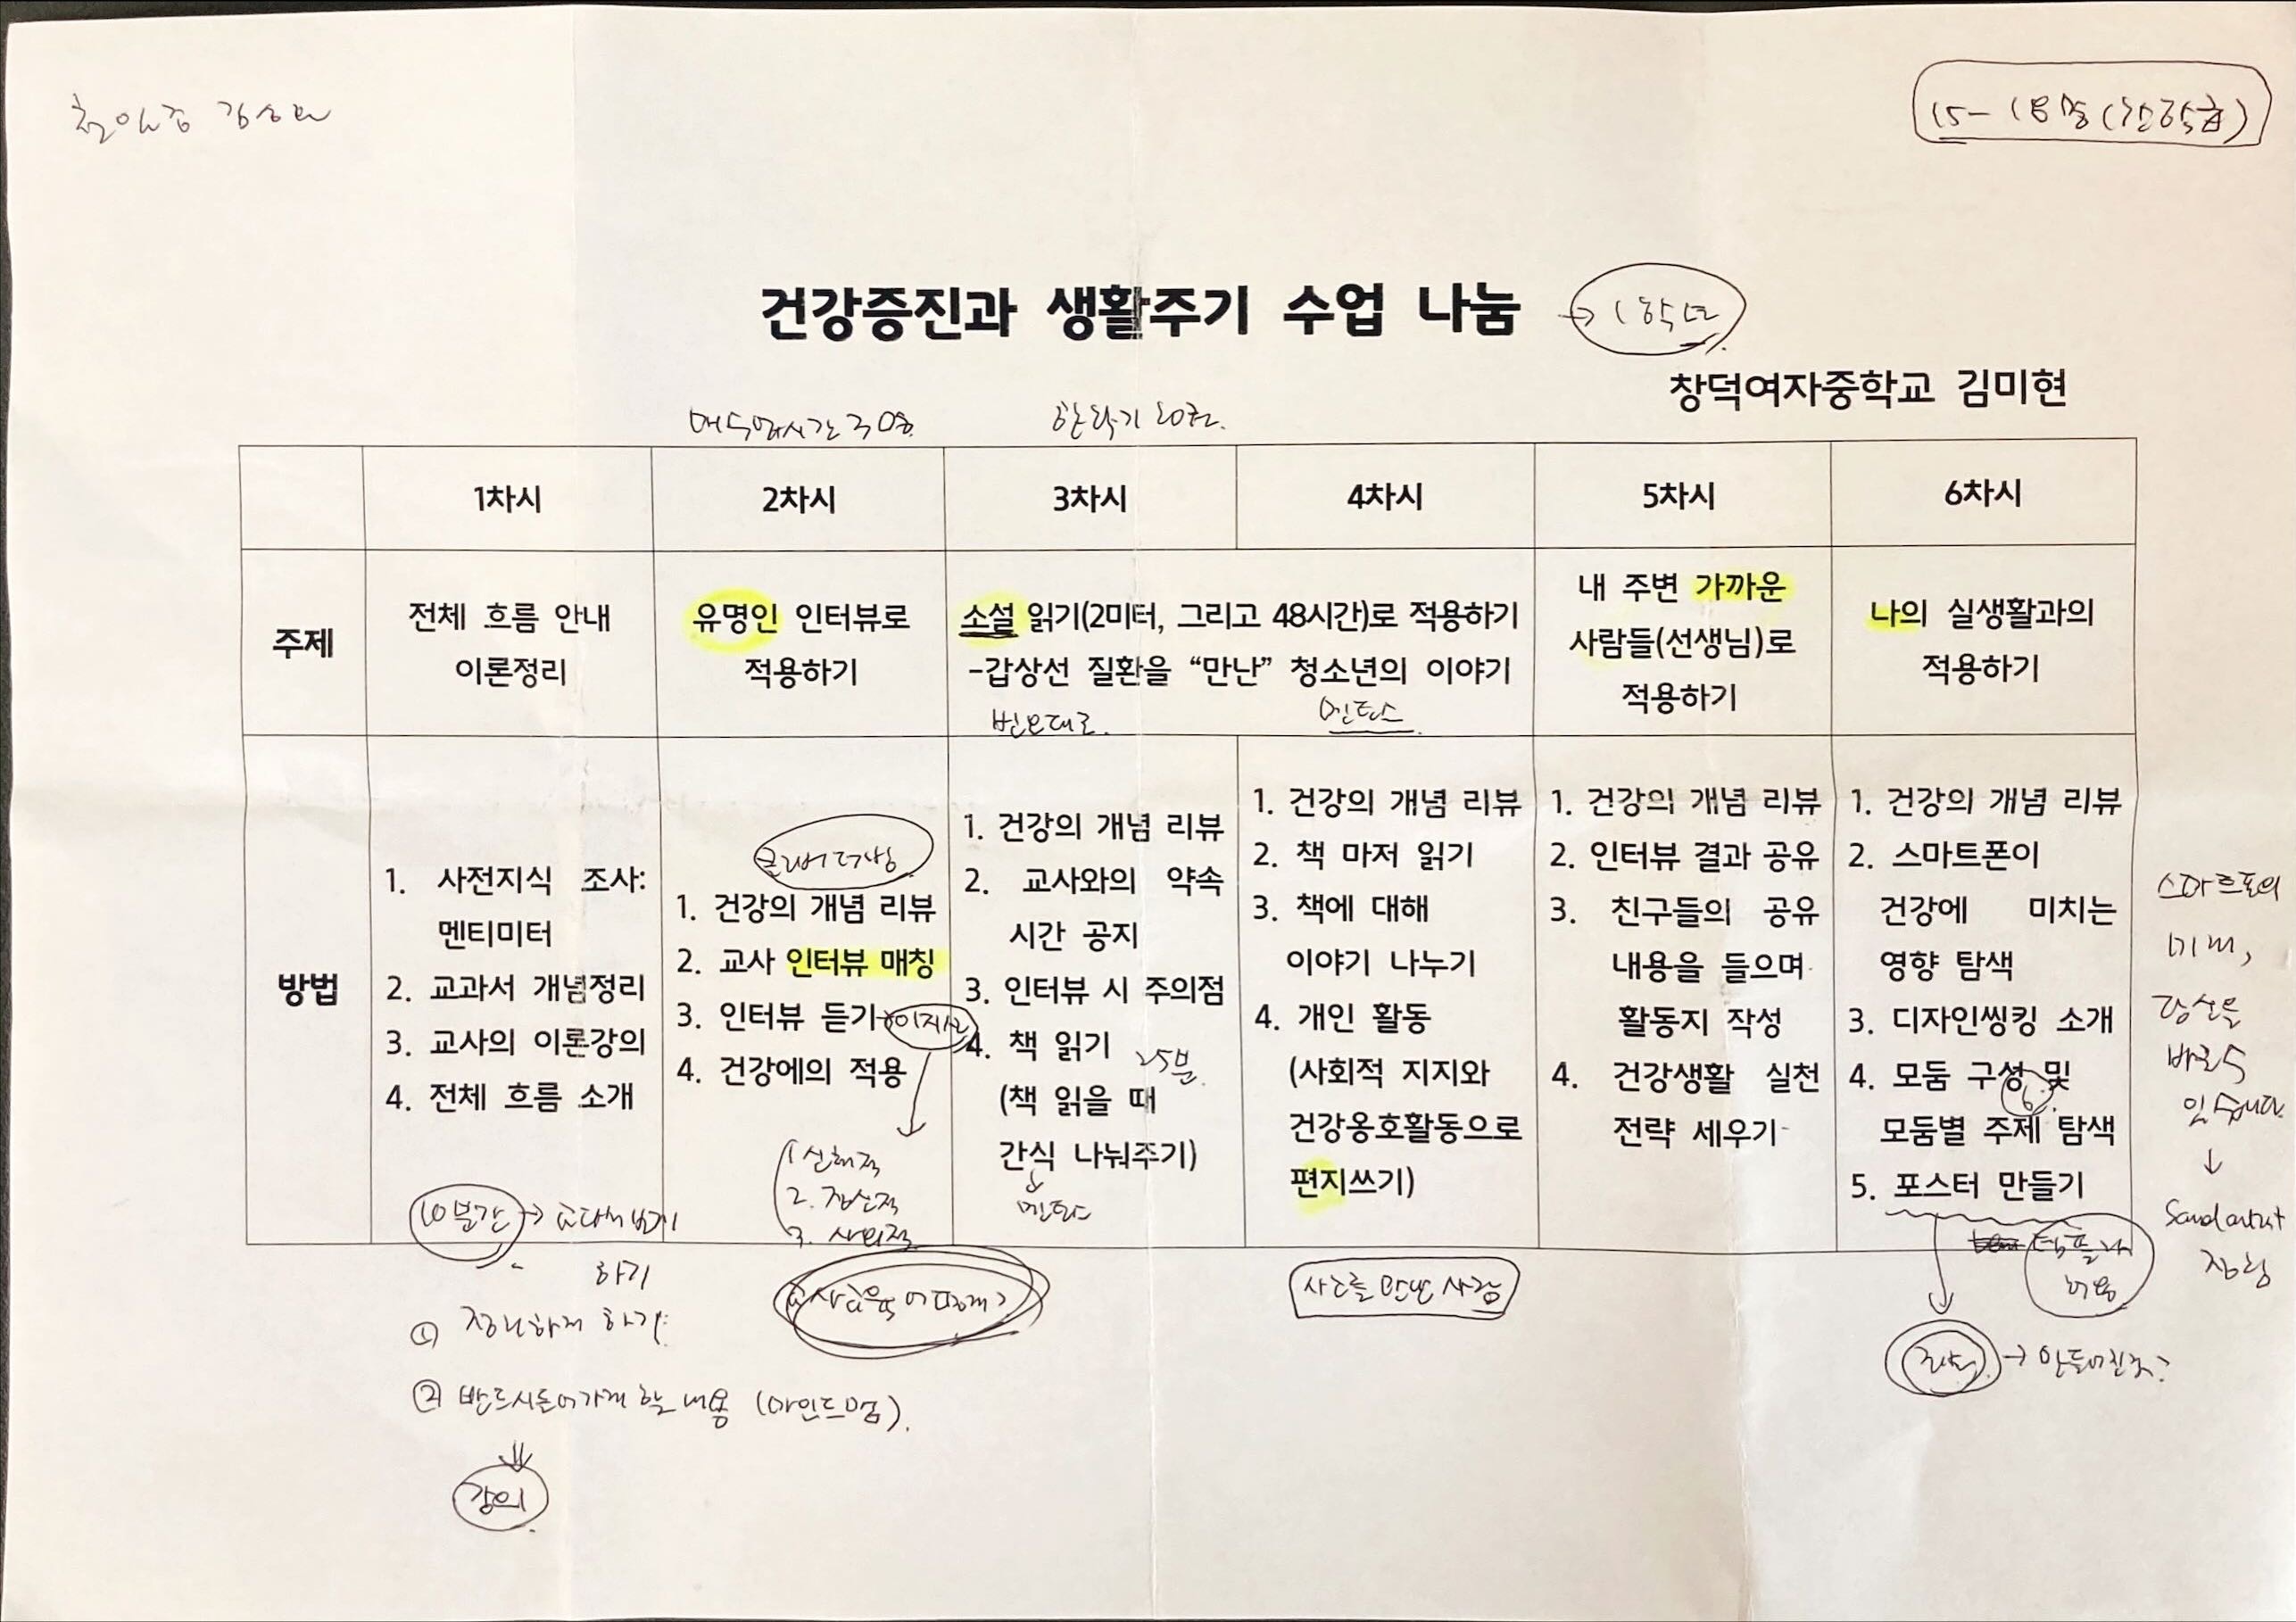 15-18명 (한학급)
건강증진과 생활주기 수업 나눔
→ 1학년
창덕여자중학교 김미현
매수업시간 30
한학기 10권.
1차시
2차시
3차시
4차시
5차시
6차시
주제
전체 흐름 안내
이론정리
유명인 인터뷰로
적용하기
소설 읽기(2미터, 그리고 48시간)로 적용하기
-갑상선 질환을 “만난” 청소년의 이야기
번호대로.
멘토스.
내 주변 가까운
사람들(선생님)로
적용하기
나의 실생활과의
적용하기
방법
1. 사전지식 조사:
멘티미터
2. 교과서 개념정리
3. 교사의 이론강의
4. 전체 흐름 소개
10분간 → 교과서 보게
하기
① 정리하게 하기.
② 반드시 들어가게 할 내용 (마인드맵).
강의
클래버 더상
1. 건강의 개념 리뷰
2. 교사 인터뷰 매칭
3. 인터뷰 듣기→이지선
4. 건강에의 적용
1. 신체적
2. 정신적
3. 사회적
1. 건강의 개념 리뷰
2. 교사와의 약속
시간 공지
3. 인터뷰 시 주의점
4. 책 읽기 25분.
(책 읽을 때
간식 나눠주기)
↓
멘토스
1. 건강의 개념 리뷰
2. 책 마저 읽기
3. 책에 대해
이야기 나누기
4. 개인 활동
(사회적 지지와
건강옹호활동으로
편지쓰기)
사고를 만난 사람
1. 건강의 개념 리뷰
2. 인터뷰 결과 공유
3. 친구들의 공유
내용을 들으며
활동지 작성
4. 건강생활 실천
전략 세우기
1. 건강의 개념 리뷰
2. 스마트폰이
건강에 미치는
영향 탐색
3. 디자인씽킹 소개
4. 모둠 구성 및
6.
모둠별 주제 탐색
5. 포스터 만들기
→ 만들어진 것?
스마트폰의
미래,
당신은
바로
있습니다
↓
Sand artist